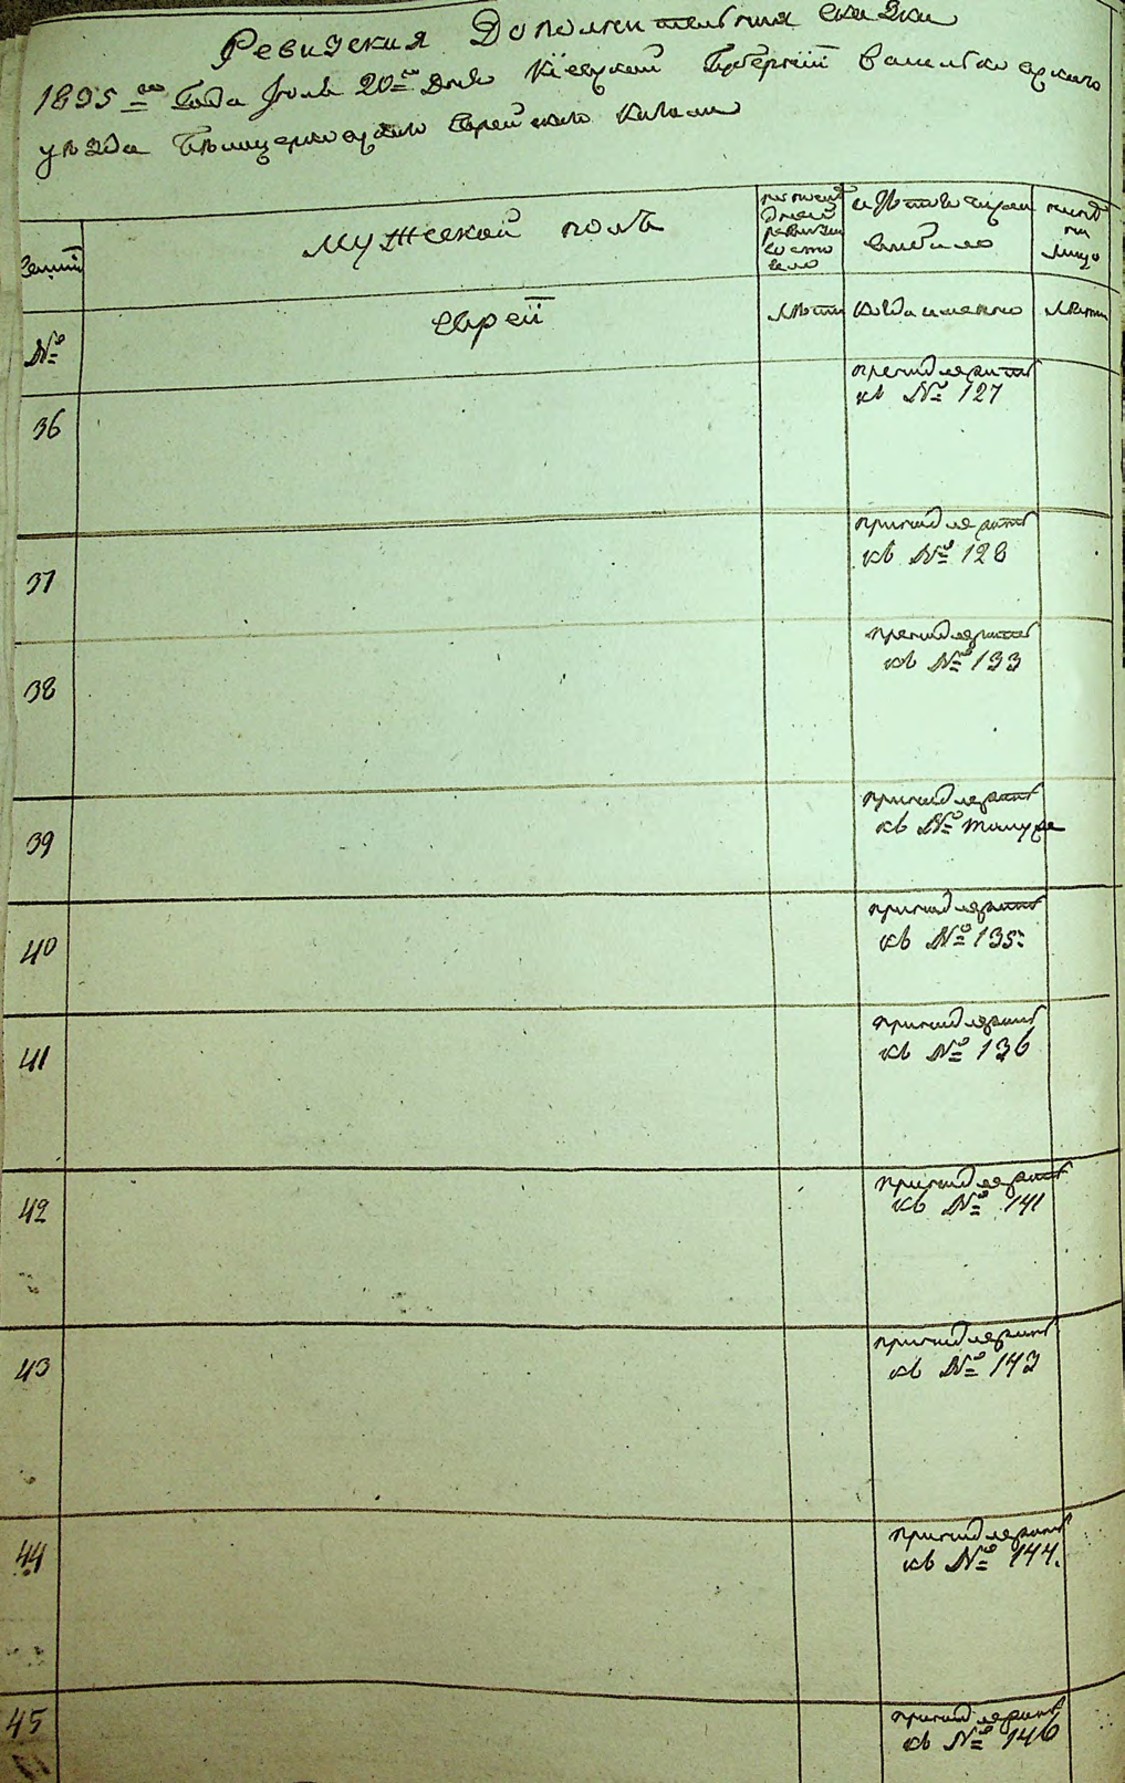 Ревизския Дополнительния скаски
1835го Года Июля 20го Дня Кіевской Губерніи Васильковскаго
уезда Белоцерковскаго Еврейскаго Кагала
Семьи
мужеской полъ
ис того числа выбыло
ныне на лицо
№
евреи
Лета
когда именно
Лета
36
принадлежит
къ № 127
37
принадлежит
къ № 128
38
принадлежит
къ № 133
39
принадлежит
къ №
40
принадлежит
къ № 135:
41
принадлежит
къ № 136
42
принадлежит
къ № 141
43
принадлежит
къ № 143
44
принадлежит
къ № 144.
45
принадлежит
къ № 146